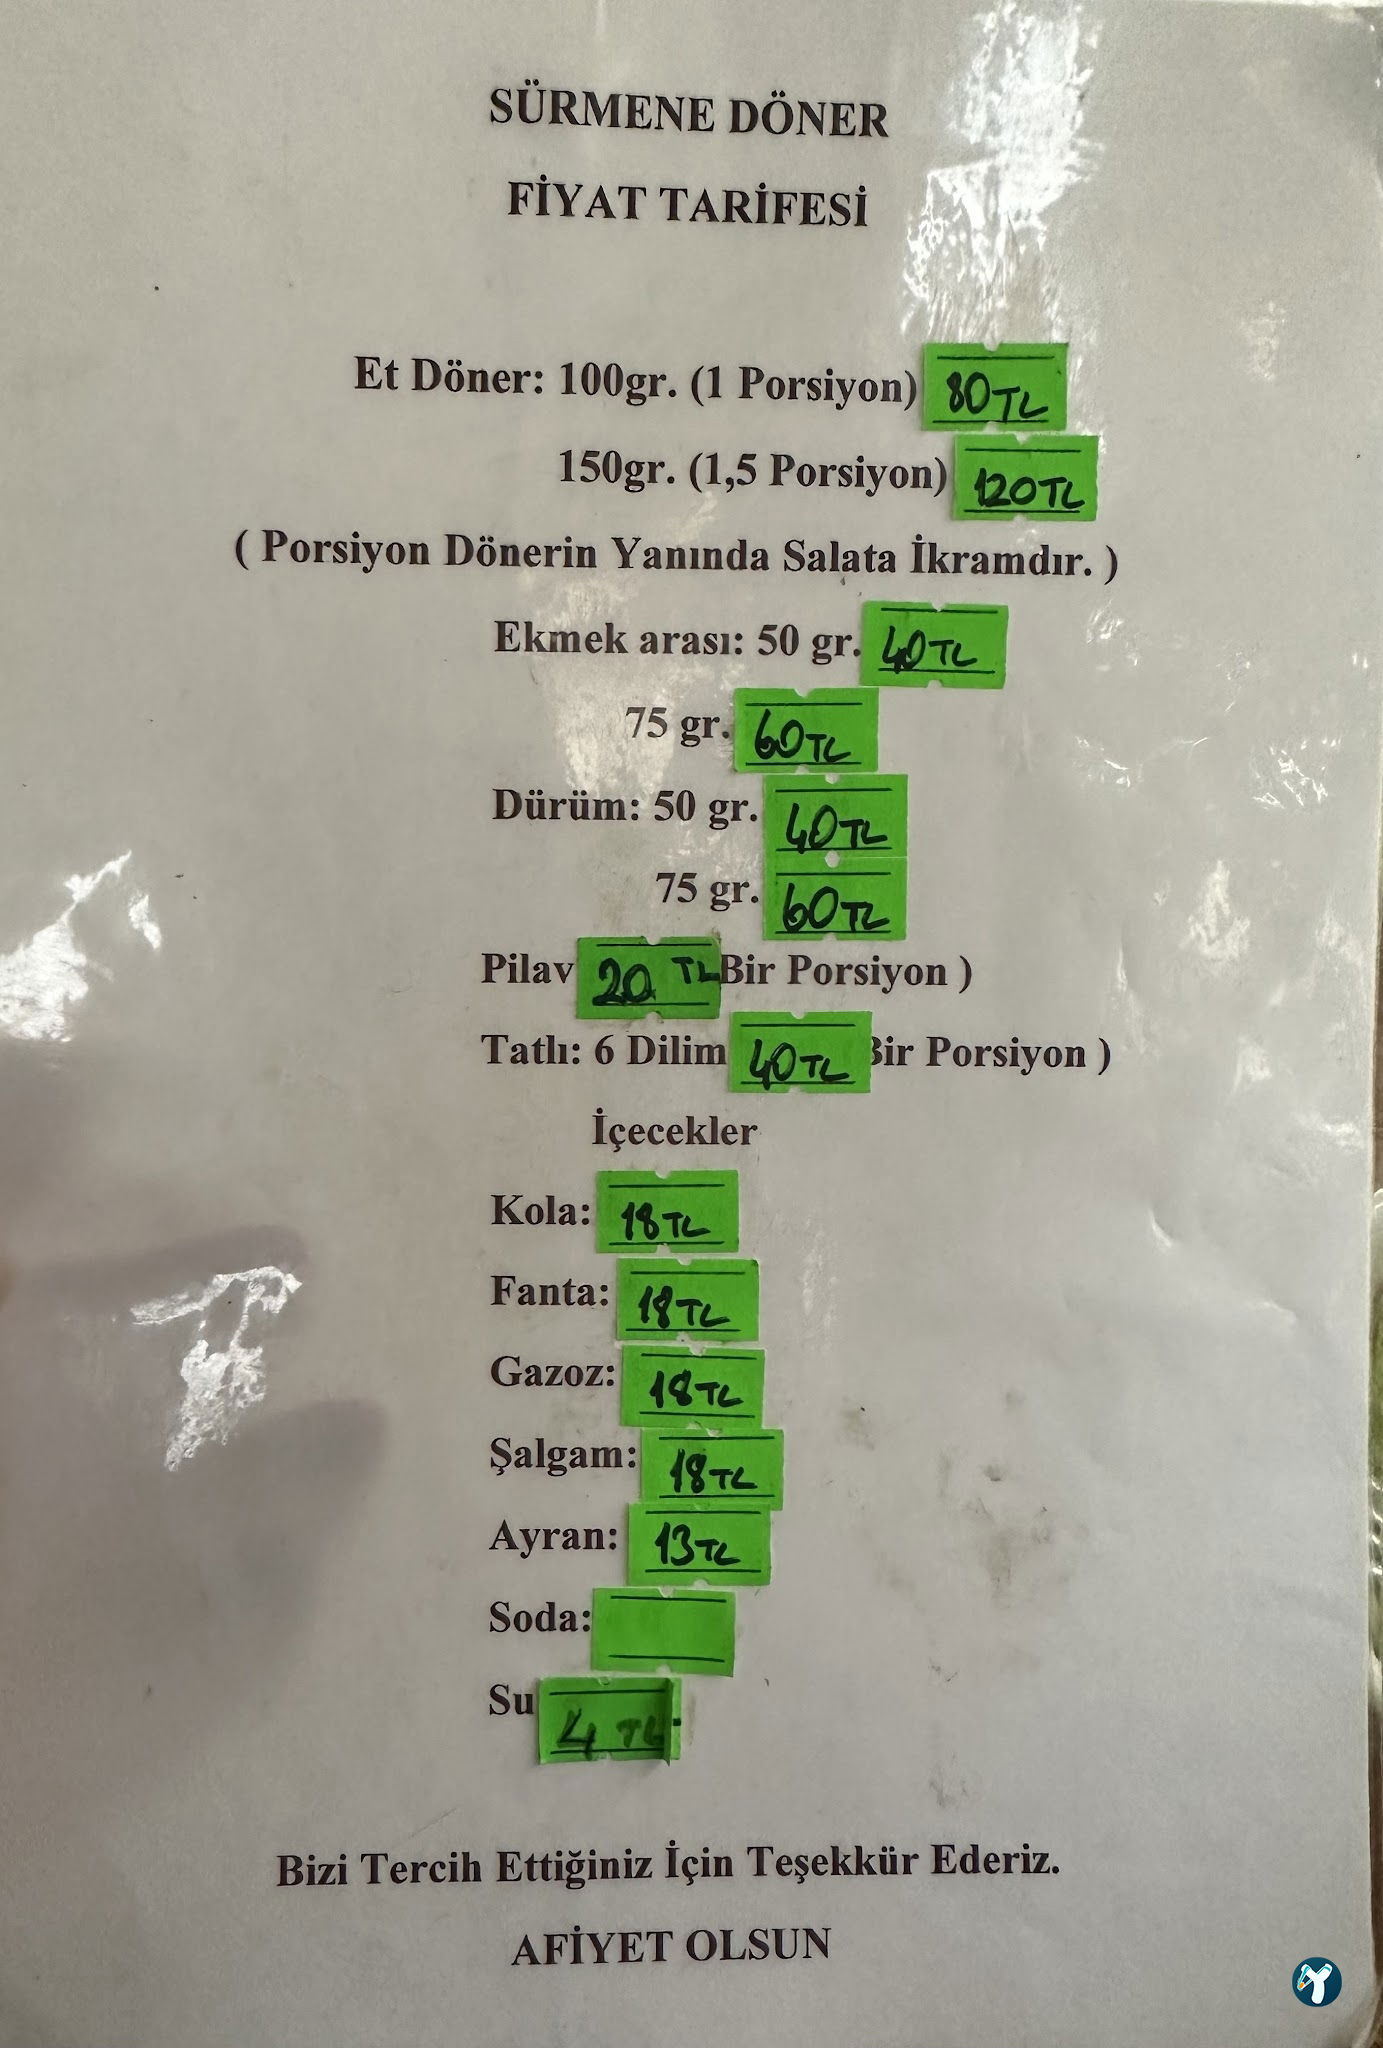 SÜRMENE DÖNER
FİYAT TARİFESİ
Et Döner: 100gr. (1 Porsiyon) 80 TL
150gr. (1,5 Porsiyon) 120 TL
( Porsiyon Dönerin Yanında Salata İkramdır. )
Ekmek arası: 50 gr. 40 TL
75 gr. 60 TL
Dürüm: 50 gr. 40 TL
75 gr. 60 TL
Pilav 20 TL Bir Porsiyon )
Tatlı: 6 Dilim 40 TL Bir Porsiyon )
İçecekler
Kola: 18 TL
Fanta: 18 TL
Gazoz: 18 TL
Şalgam: 18 TL
Ayran: 13 TL
Soda:
Su 4 TL
Bizi Tercih Ettiğiniz İçin Teşekkür Ederiz.
AFİYET OLSUN